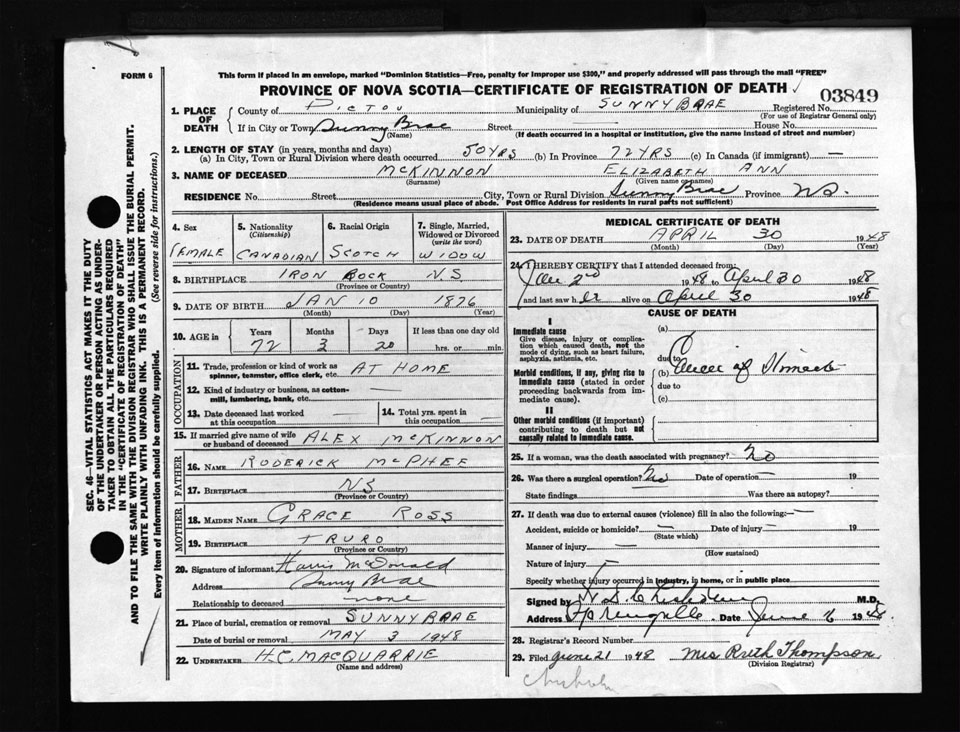 FORM 6
This form if placed in an envelope, marked "Dominion Statistics—Free, penalty for improper use $300," and properly addressed will pass through the mail "FREE"
PROVINCE OF NOVA SCOTIA—CERTIFICATE OF REGISTRATION OF DEATH
03849
1. PLACE OF DEATH
County of PICTOU Municipality of SUNNY BRAE Registered No.
(For use of Registrar General only)
If in City or Town Sunny Brae Street — House No.
(Name) (If death occurred in a hospital or institution, give the name instead of street and number)
2. LENGTH OF STAY (in years, months and days)
(a) In City, Town or Rural Division where death occurred 50 YRS (b) In Province 72 YRS (c) In Canada (if immigrant) —
3. NAME OF DECEASED MCKINNON ELIZABETH ANN
(Surname) (Given name or names)
RESIDENCE No. Street City, Town or Rural Division Sunny Brae Province N.S.
(Residence means usual place of abode. Post Office Address for residents in rural parts not sufficient)
4. Sex FEMALE
5. Nationality (Citizenship) CANADIAN
6. Racial Origin SCOTCH
7. Single, Married, Widowed or Divorced (write the word) WIDOW
8. BIRTHPLACE IRON ROCK N.S
(Province or Country)
9. DATE OF BIRTH JAN 10 1876
(Month) (Day) (Year)
10. AGE in Years 72 Months 3 Days 20 If less than one day old hrs. or min.
OCCUPATION
11. Trade, profession or kind of work as spinner, teamster, office clerk, etc. AT HOME
12. Kind of industry or business, as cotton-mill, lumbering, bank, etc. —
13. Date deceased last worked at this occupation —
14. Total yrs. spent in this occupation —
15. If married give name of wife or husband of deceased ALEX MCKINNON
FATHER
16. NAME RODERICK MCPHEE
17. BIRTHPLACE NS
(Province or Country)
MOTHER
18. MAIDEN NAME GRACE ROSS
19. BIRTHPLACE TRURO
(Province or Country)
20. Signature of informant Harris McDonald
Address Sunny Brae
Relationship to deceased none
21. Place of burial, cremation or removal SUNNY BRAE
Date of burial or removal MAY 3 1948
22. UNDERTAKER H.C. MACQUARRIE
(Name and address)
MEDICAL CERTIFICATE OF DEATH
23. DATE OF DEATH APRIL 30 1948
(Month) (Day) (Year)
24. I HEREBY CERTIFY that I attended deceased from:
2nd 1948 to April 30 1948
and last saw her alive on April 30 1948
CAUSE OF DEATH
I
Immediate cause
Give disease, injury or complication which caused death, not the mode of dying, such as heart failure, asphyxia, asthenia, etc.
Morbid conditions, if any, giving rise to immediate cause (stated in order proceeding backwards from immediate cause).
II
Other morbid conditions (if important) contributing to death but not causally related to immediate cause.
(a)
due to
(b) of Stomach
due to
(c)
25. If a woman, was the death associated with pregnancy? No
26. Was there a surgical operation? No Date of operation — 19
State findings Was there an autopsy?
27. If death was due to external causes (violence) fill in also the following:—
Accident, suicide or homicide? — Date of injury — 19
(State which)
Manner of injury —
(How sustained)
Nature of injury —
Specify whether injury occurred in industry, in home, or in public place
Signed by M.D.
Address Date June 1948
28. Registrar's Record Number
29. Filed June 21 1948 Mrs Ruth Thompson
(Division Registrar)
Chisholm
SEC. 46—VITAL STATISTICS ACT MAKES IT THE DUTY
OF THE UNDERTAKER OR PERSON ACTING AS UNDERTAKER TO OBTAIN ALL THE PARTICULARS REQUIRED
IN THE "CERTIFICATE OF REGISTRATION OF DEATH"
AND TO FILE THE SAME WITH THE DIVISION REGISTRAR WHO SHALL ISSUE THE BURIAL PERMIT.
WRITE PLAINLY WITH UNFADING INK. THIS IS A PERMANENT RECORD.
Every item of information should be carefully supplied. (See reverse side for instructions.)